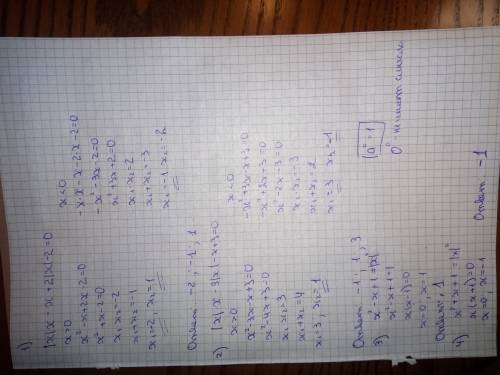 1)
|x|x - x + 2|x| - 2 = 0
x > 0
x² - x + 2x - 2 = 0
x² + x - 2 = 0
x₁x₂ = -2
x₁ + x₂ = -1
x₁ = -2, x₂ = 1
x < 0
-x·x - x - 2·x - 2 = 0
-x² - 3x - 2 = 0
x² + 3x + 2 = 0
x₁·x₂ = 2
x₁ + x₂ = -3
x₁ = -1 x₂ = -2
Ответ -2 ; -1 ; 1
2)
|x| x - 3|x| - x + 3 = 0
x > 0
x² - 3x - x + 3 = 0
x² - 4x + 3 = 0
x₁ x₂ = 3
x₁ + x₂ = 4
x₁ = 3, x₂ = 1
x < 0
-x² + 3x - x + 3 = 0
-x² + 2x + 3 = 0
x² - 2x - 3 = 0
x₁ x₂ = -3
x₁ + x₂ = 2
x₁ = 3 x₂ = -1
Ответ -1 ; 1 ; 3
3)
x² - x + 1 = |x|⁰
x² - x + 1 = 1
x(x-1) = 0
x = 0, x = 1
Ответ 1
a⁰ = 1
0⁰ - не имеет смысла
4)
x² + x + 1 = |x|⁰
x(x+1) = 0
x = 0, x = -1
Ответ -1